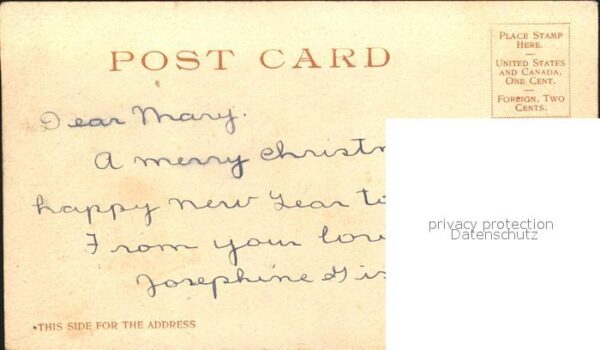 POST CARD
PLACE STAMP
HERE.
UNITED STATES
AND CANADA,
ONE CENT.
FOREIGN, TWO
CENTS.
Dear Mary.
A merry christm
happy new Year to
From your lov
Josephine Gis
privacy protection
Datenschutz
THIS SIDE FOR THE ADDRESS